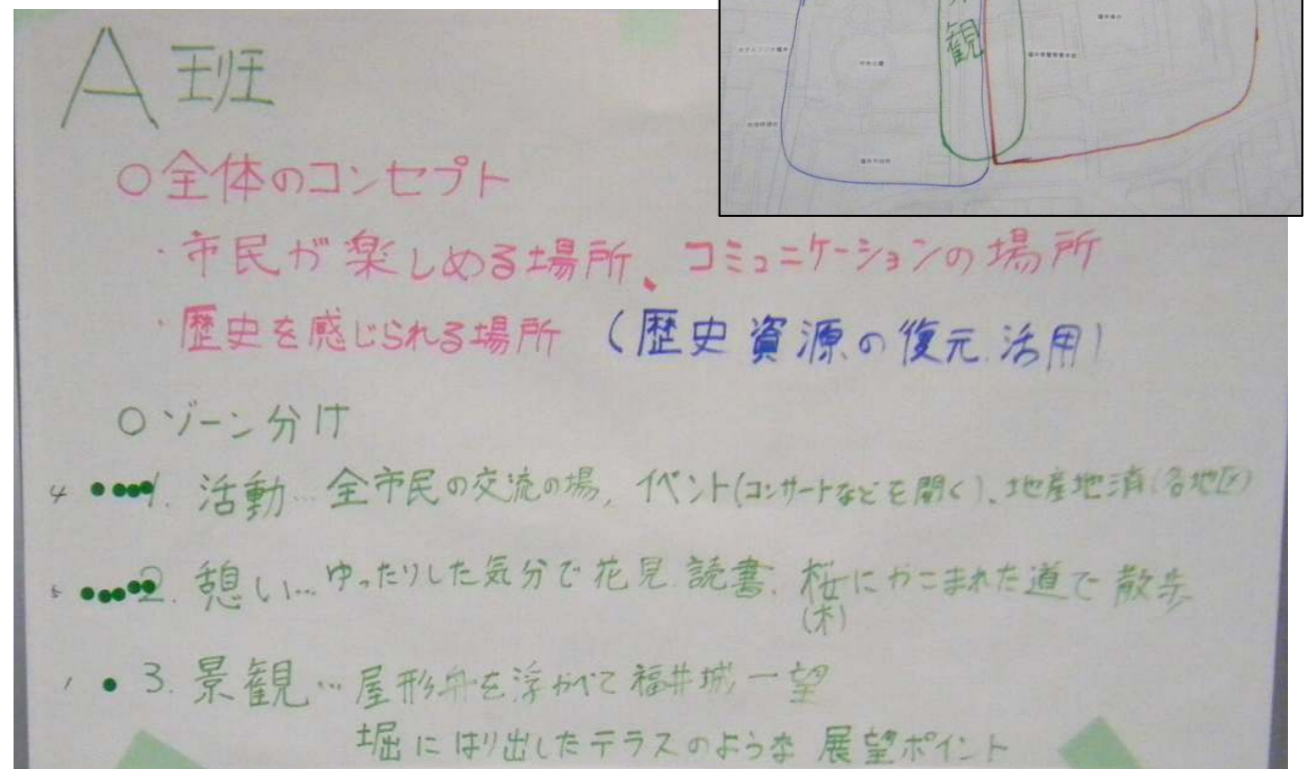 A班
○全体のコンセプト
・市民が楽しめる場所、コミュニケーションの場所
・歴史を感じられる場所 (歴史資源の復元.活用)
○ゾーン分け
4 1. 活動…全市民の交流の場, イベント(コンサートなどを開く)、地産地消(各地区)
5 2. 憩い…ゆったりした気分で花見.読書. 桜にかこまれた道で散歩
(木)
1 3. 景観…屋形舟を浮かべて福井城一望
堀にはり出したテラスのような展望ポイント
観